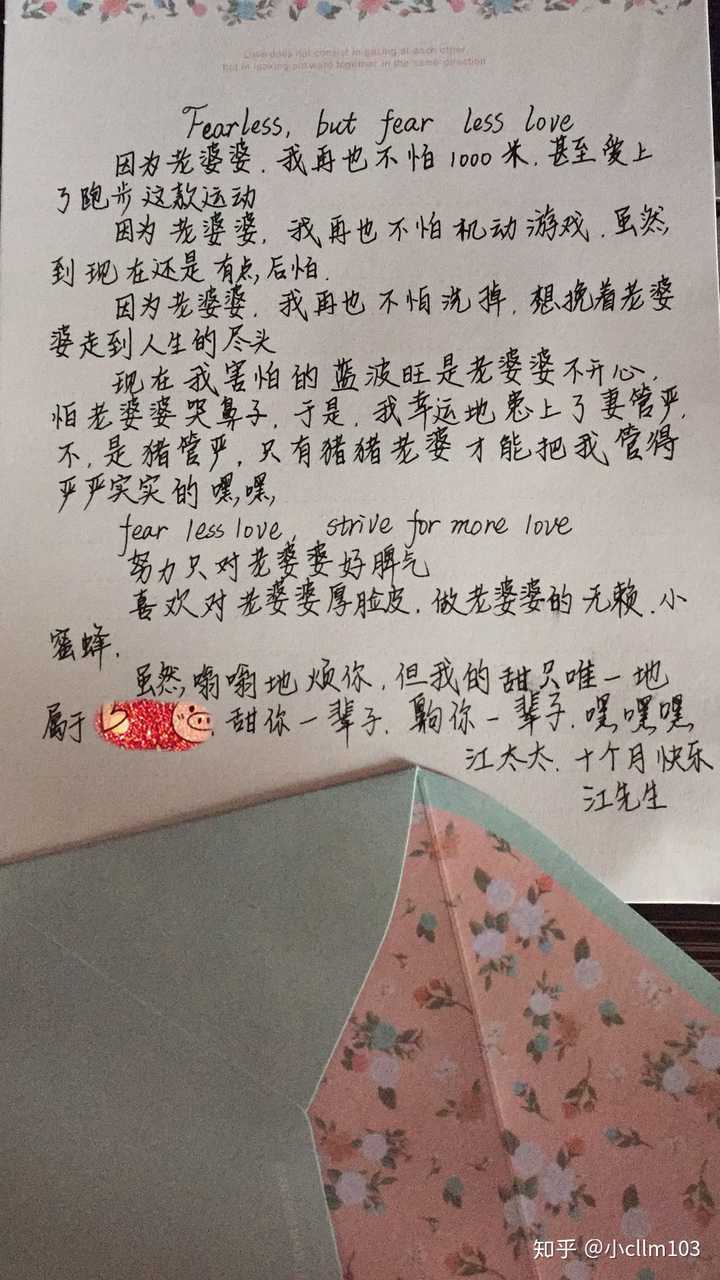 Love does not consist in gazing at each other
but in looking outward together in the same direction
Fearless, but fear less love
因为老婆婆,我再也不怕1000米,甚至爱上
了跑步这款运动
因为老婆婆,我再也不怕机动游戏.虽然,
到现在还是有点后怕.
因为老婆婆,我再也不怕洗掉,想挽着老婆
婆走到人生的尽头
现在我害怕的蓝波旺是老婆婆不开心,
怕老婆婆哭鼻子,于是,我幸运地患上了妻管严,
不,是猪管严,只有猪猪老婆才能把我管得
严严实实的嘿嘿,
fear less love, strive for more love
努力只对老婆婆好脾气
喜欢对老婆婆厚脸皮,做老婆婆的无赖.小
蜜蜂.
虽然嗡嗡地烦你,但我的甜只唯一地
属于 ,甜你一辈子,齁你一辈子.嘿嘿嘿
江太太.十个月快乐
江先生
知乎 @小cllm103